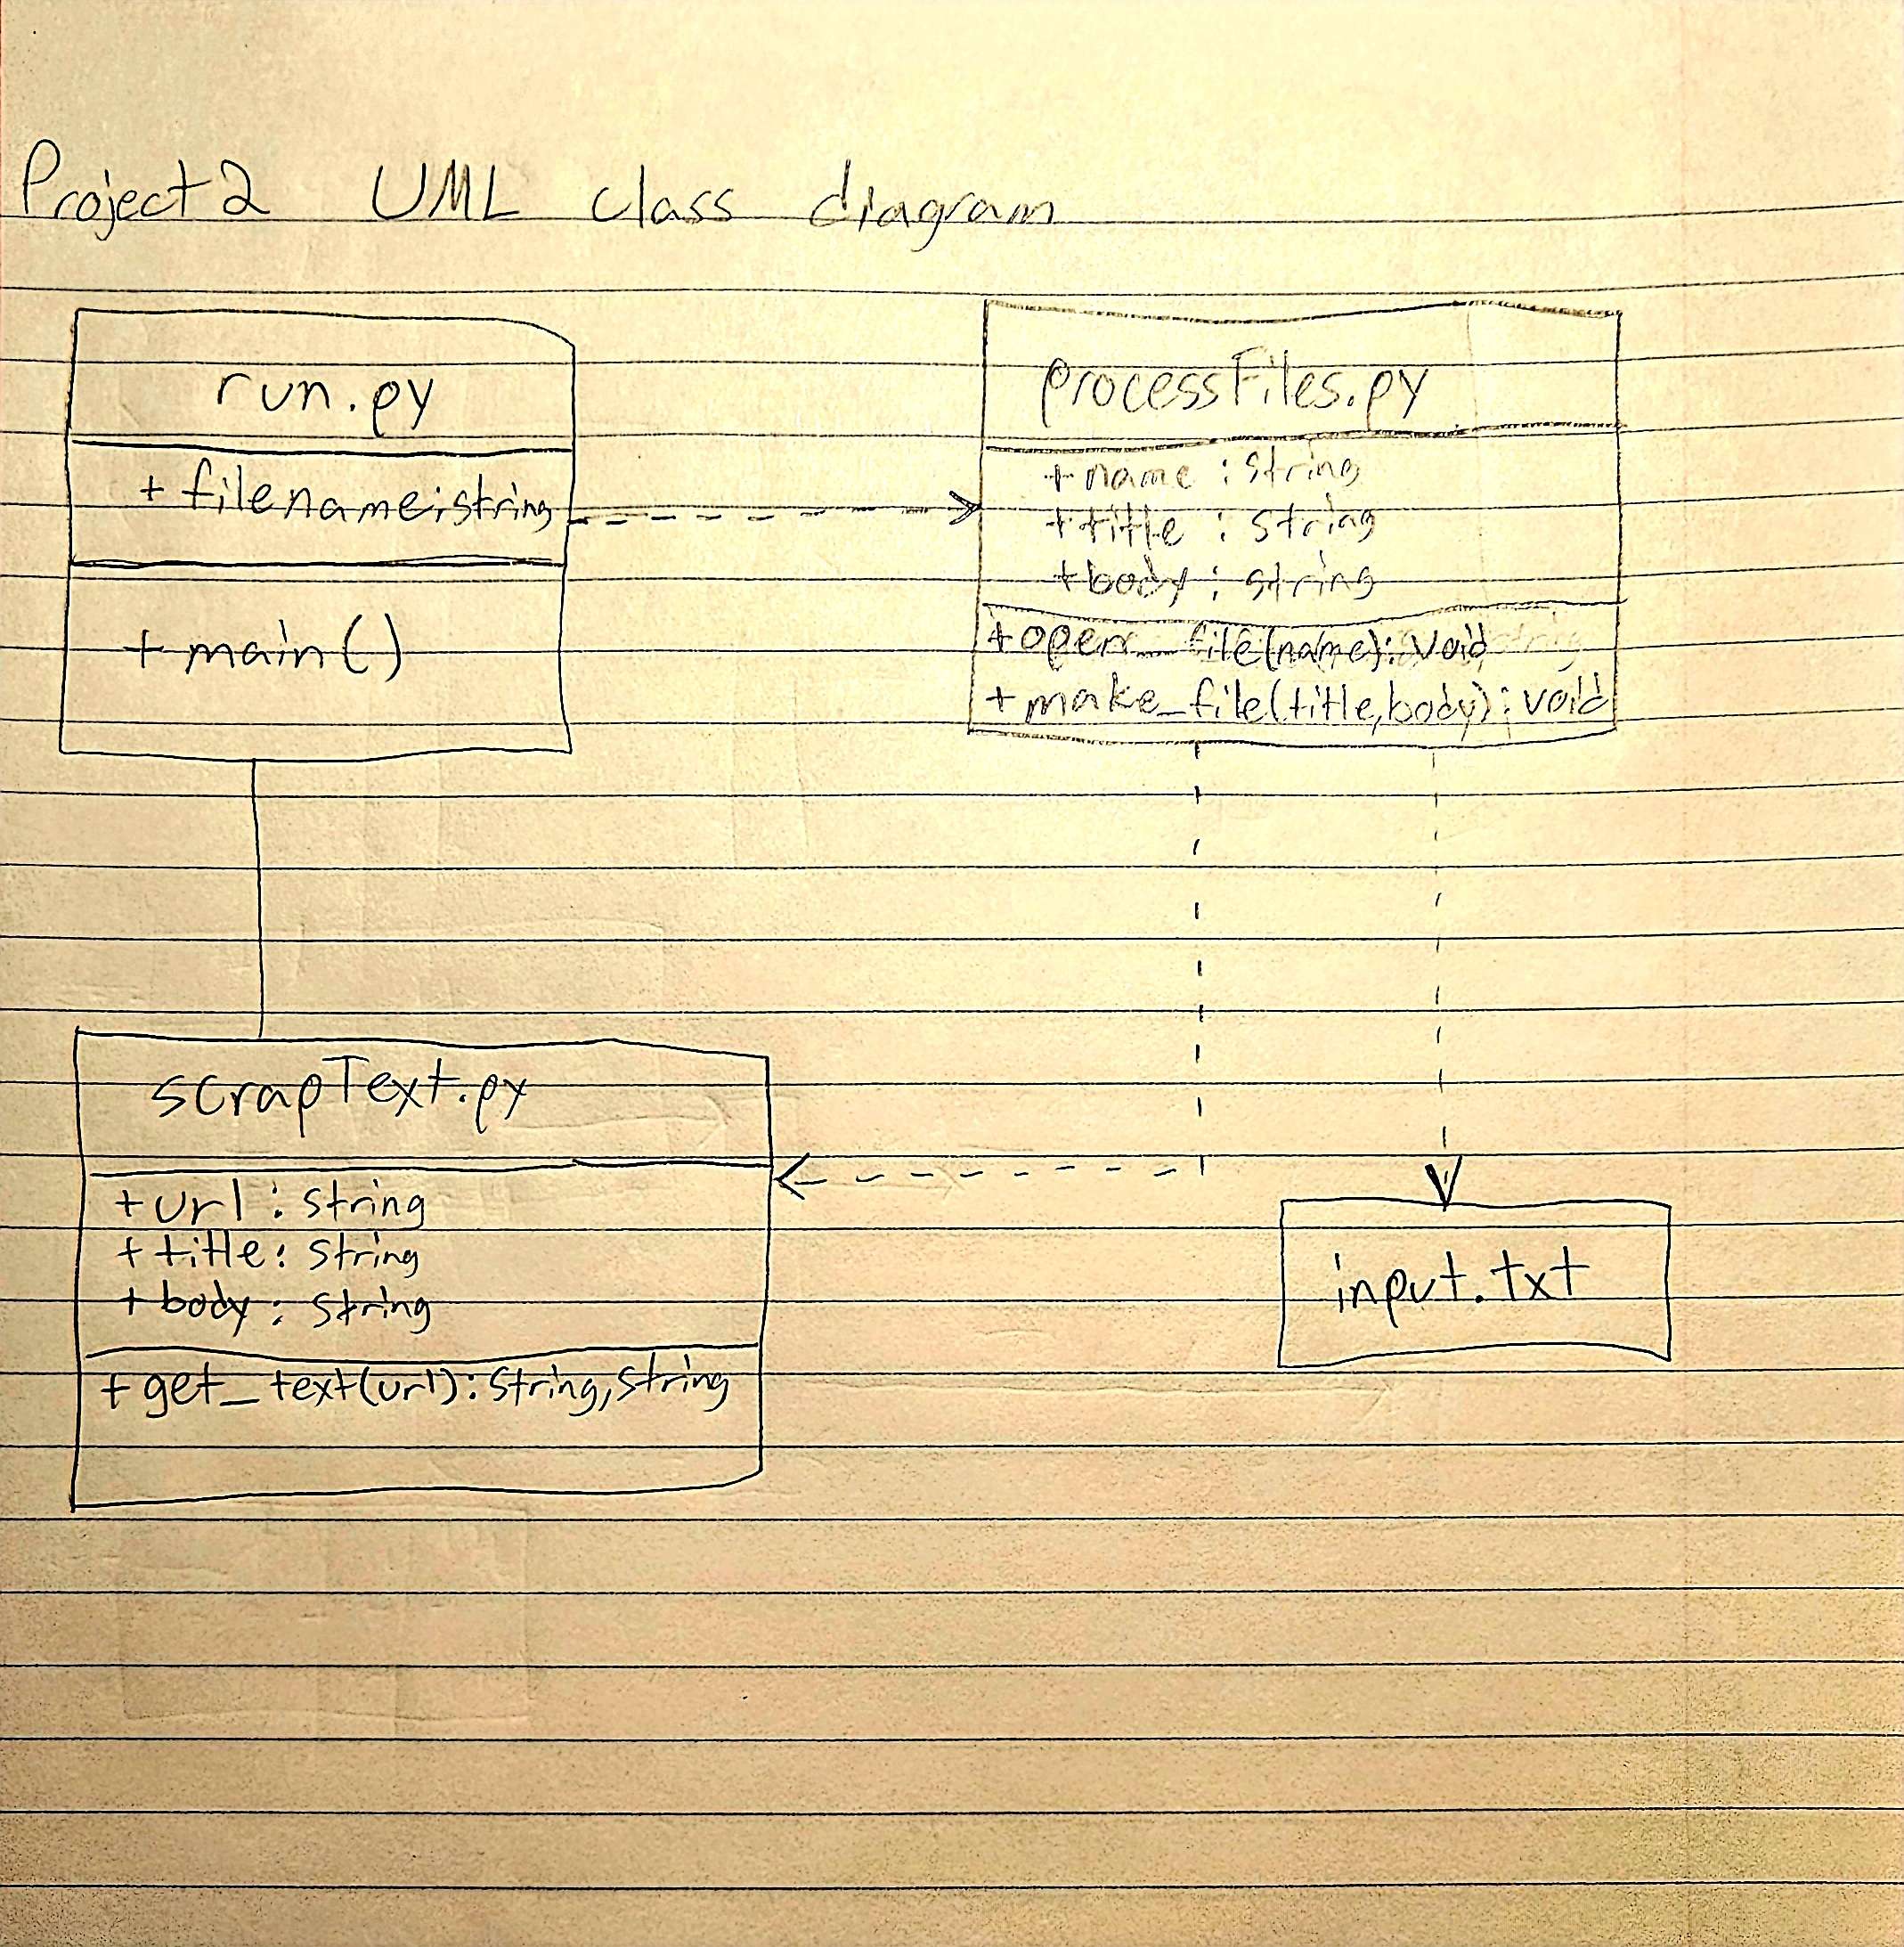 Project 2 UML class diagram
run.py
+ filename: string
+ main()
processFiles.py
+ name : string
+ title : string
+ body : string
+ open_file(name): void
+ make_file(title,body): void
scrapText.py
+ url : string
+ title: string
+ body : string
+ get_text(url): string, string
input.txt